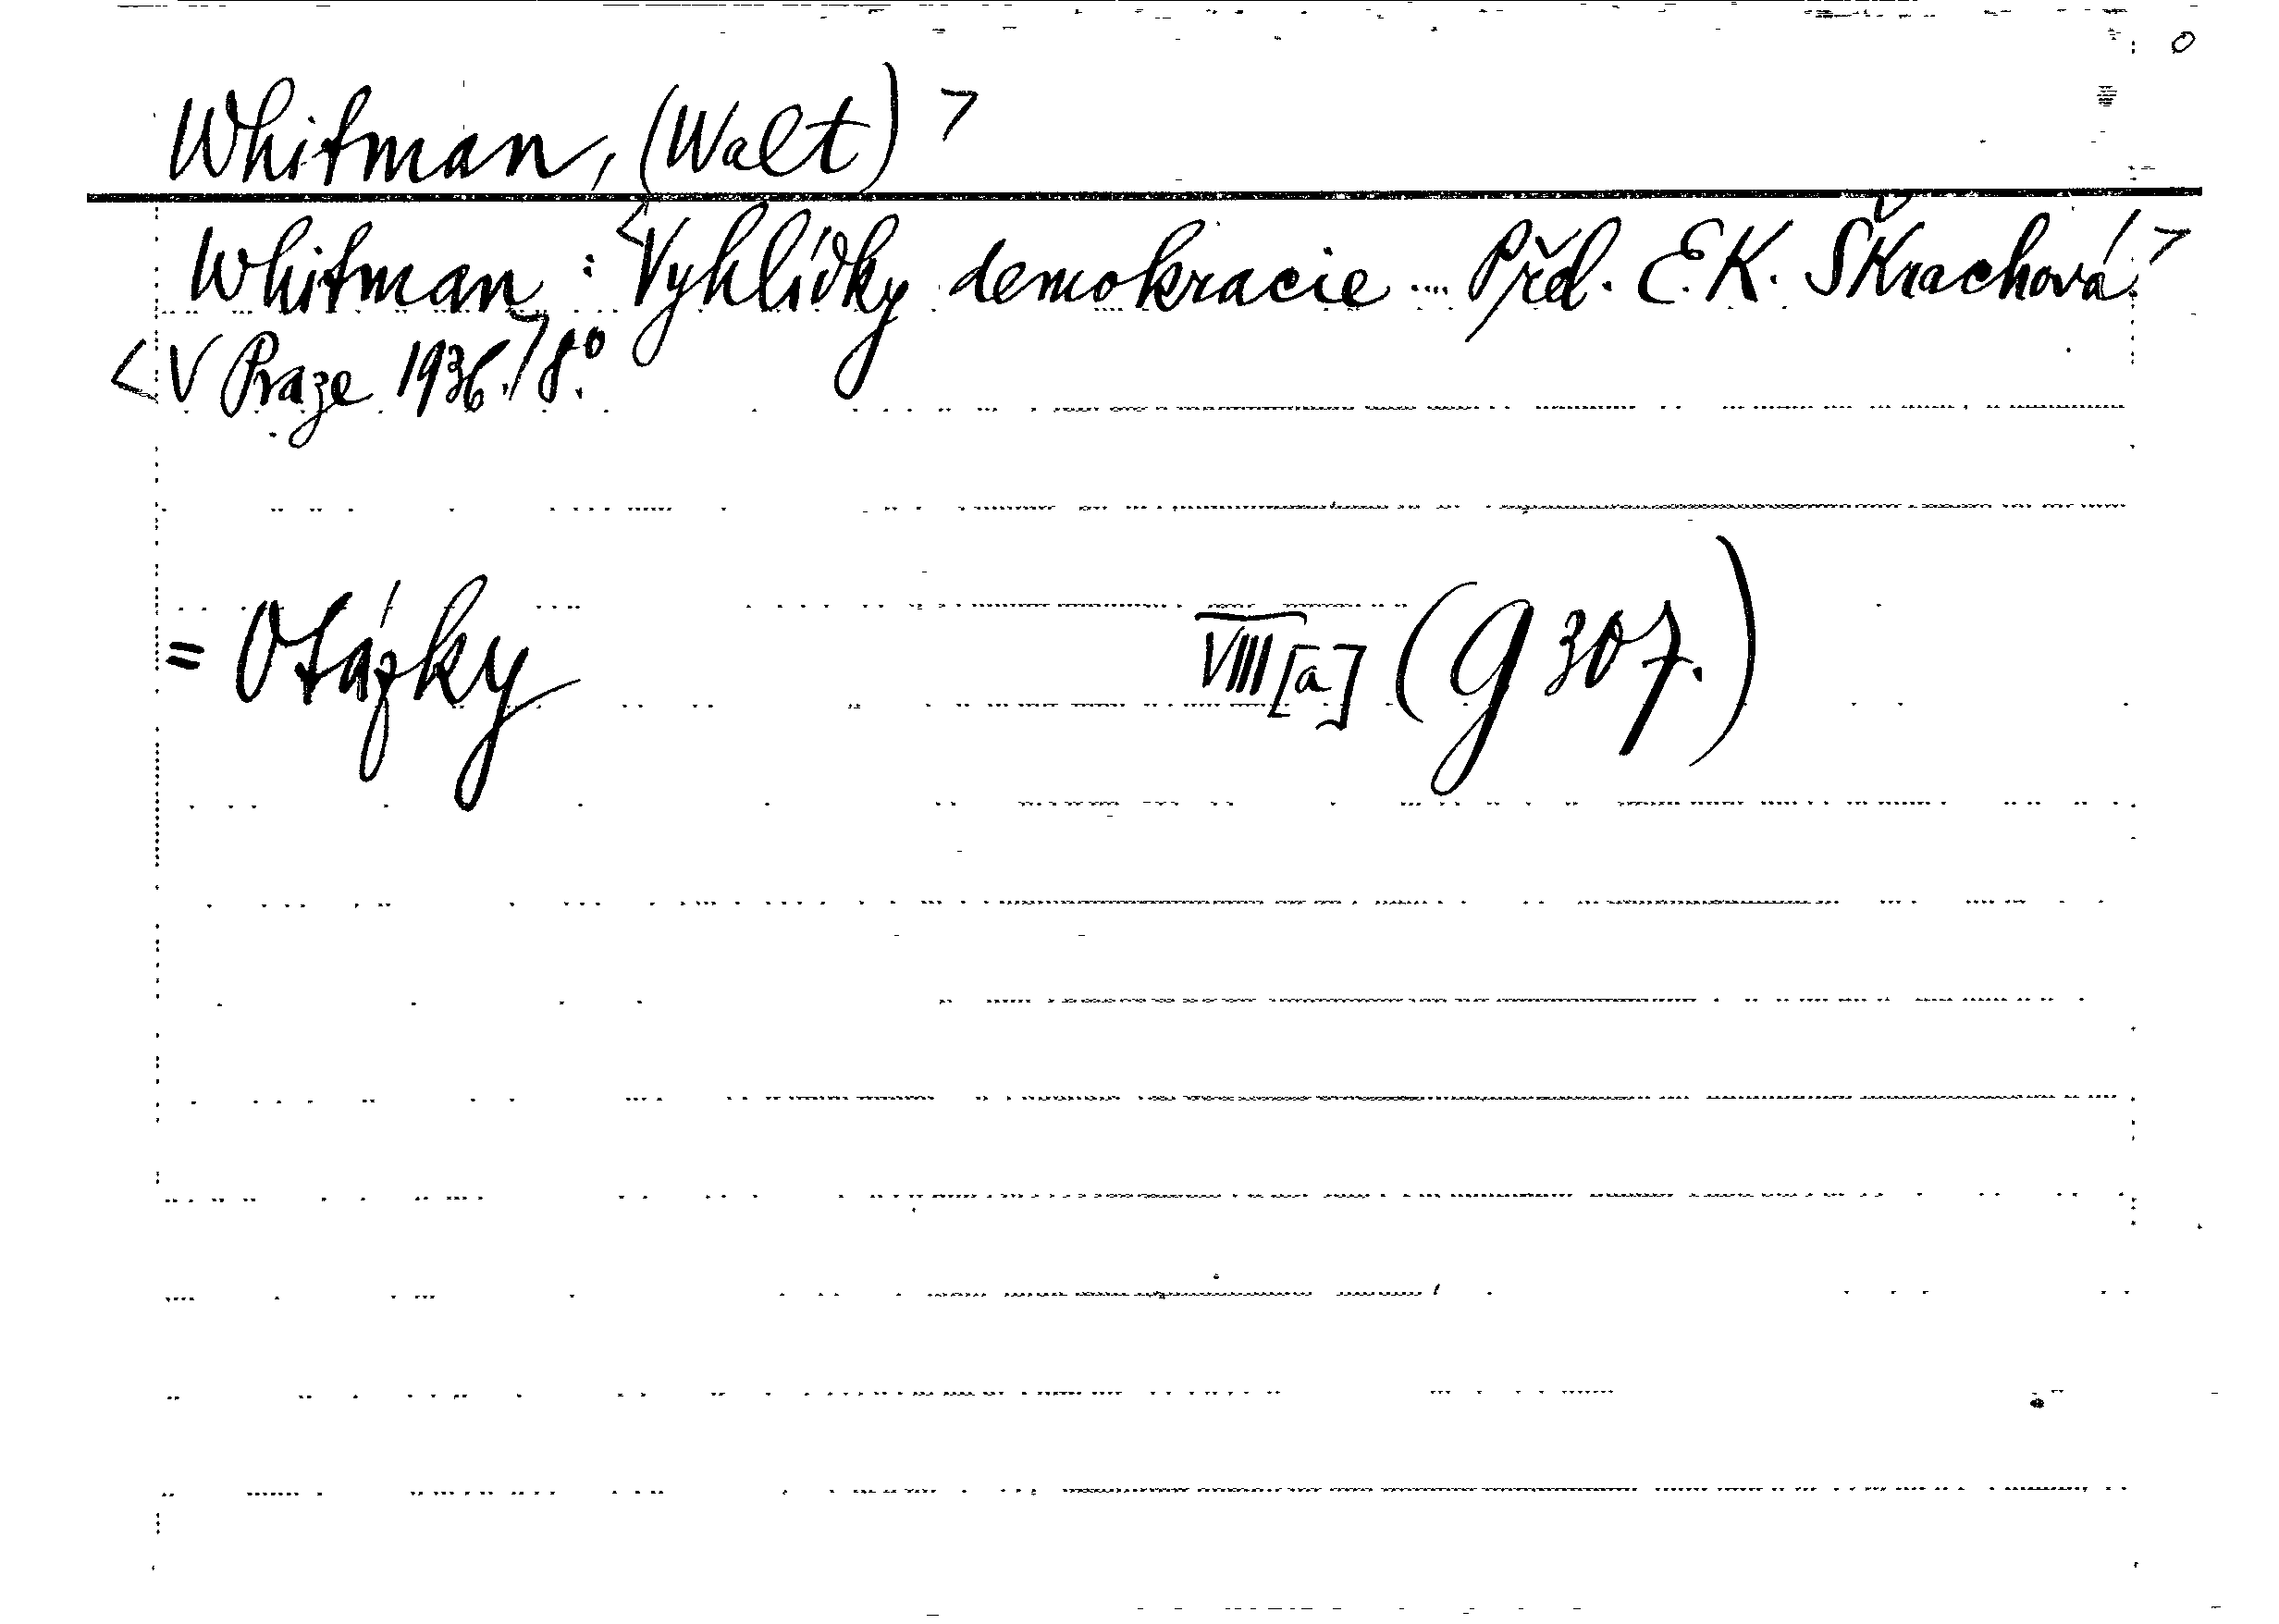 o
Whitman, (Walt) >
Whitman : <Vyhlídky demokracie ... Přel. E. K. Škrachová. >
<V Praze 1936.> 8°.
= Otázky VIII [a] (g 307.)